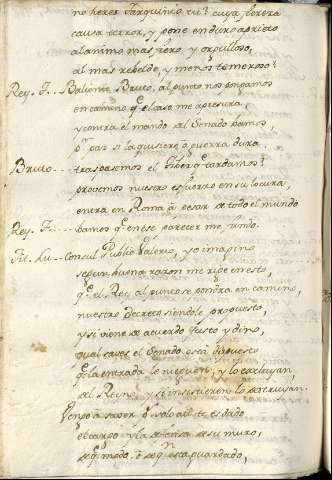 no heres Tarquino tu? cuya fiereza
causa terror, y pone en duro aprieto
al animo mas fiero y orgulloso,
al mas rebelde, y menos temeroso?
Rey. T... Baliente Bruto, al punto nos pongamos
en camino q. el caso me apresura,
y contra el mando del Senado vamos,
o paz si la quisiere o guerra dura.
Bruto.... traspasemos el tardamos?
provemos nuestro esfuerzo en su locura,
entra en Roma a pesar de todo el mundo
Rey. T.... bamos q. en ese parecer me fundo.
Consul Publio Valerio, yo imagino
segun buena razon me rige en esto,
q. el Rey al punto se pondra en camino,
nuestro decreto siendole propuesto,
y si viene de acuerdo justo y dino,
qual saves el Senado está dispuesto
q. la entrada le nieguen, y lo excluyan,
del Reyno, y si insistieren lo destruyan.
a saver q. solo a ti te es dado
el cargo y la defensa de su muro,
de q. modo o de q. está guardado,